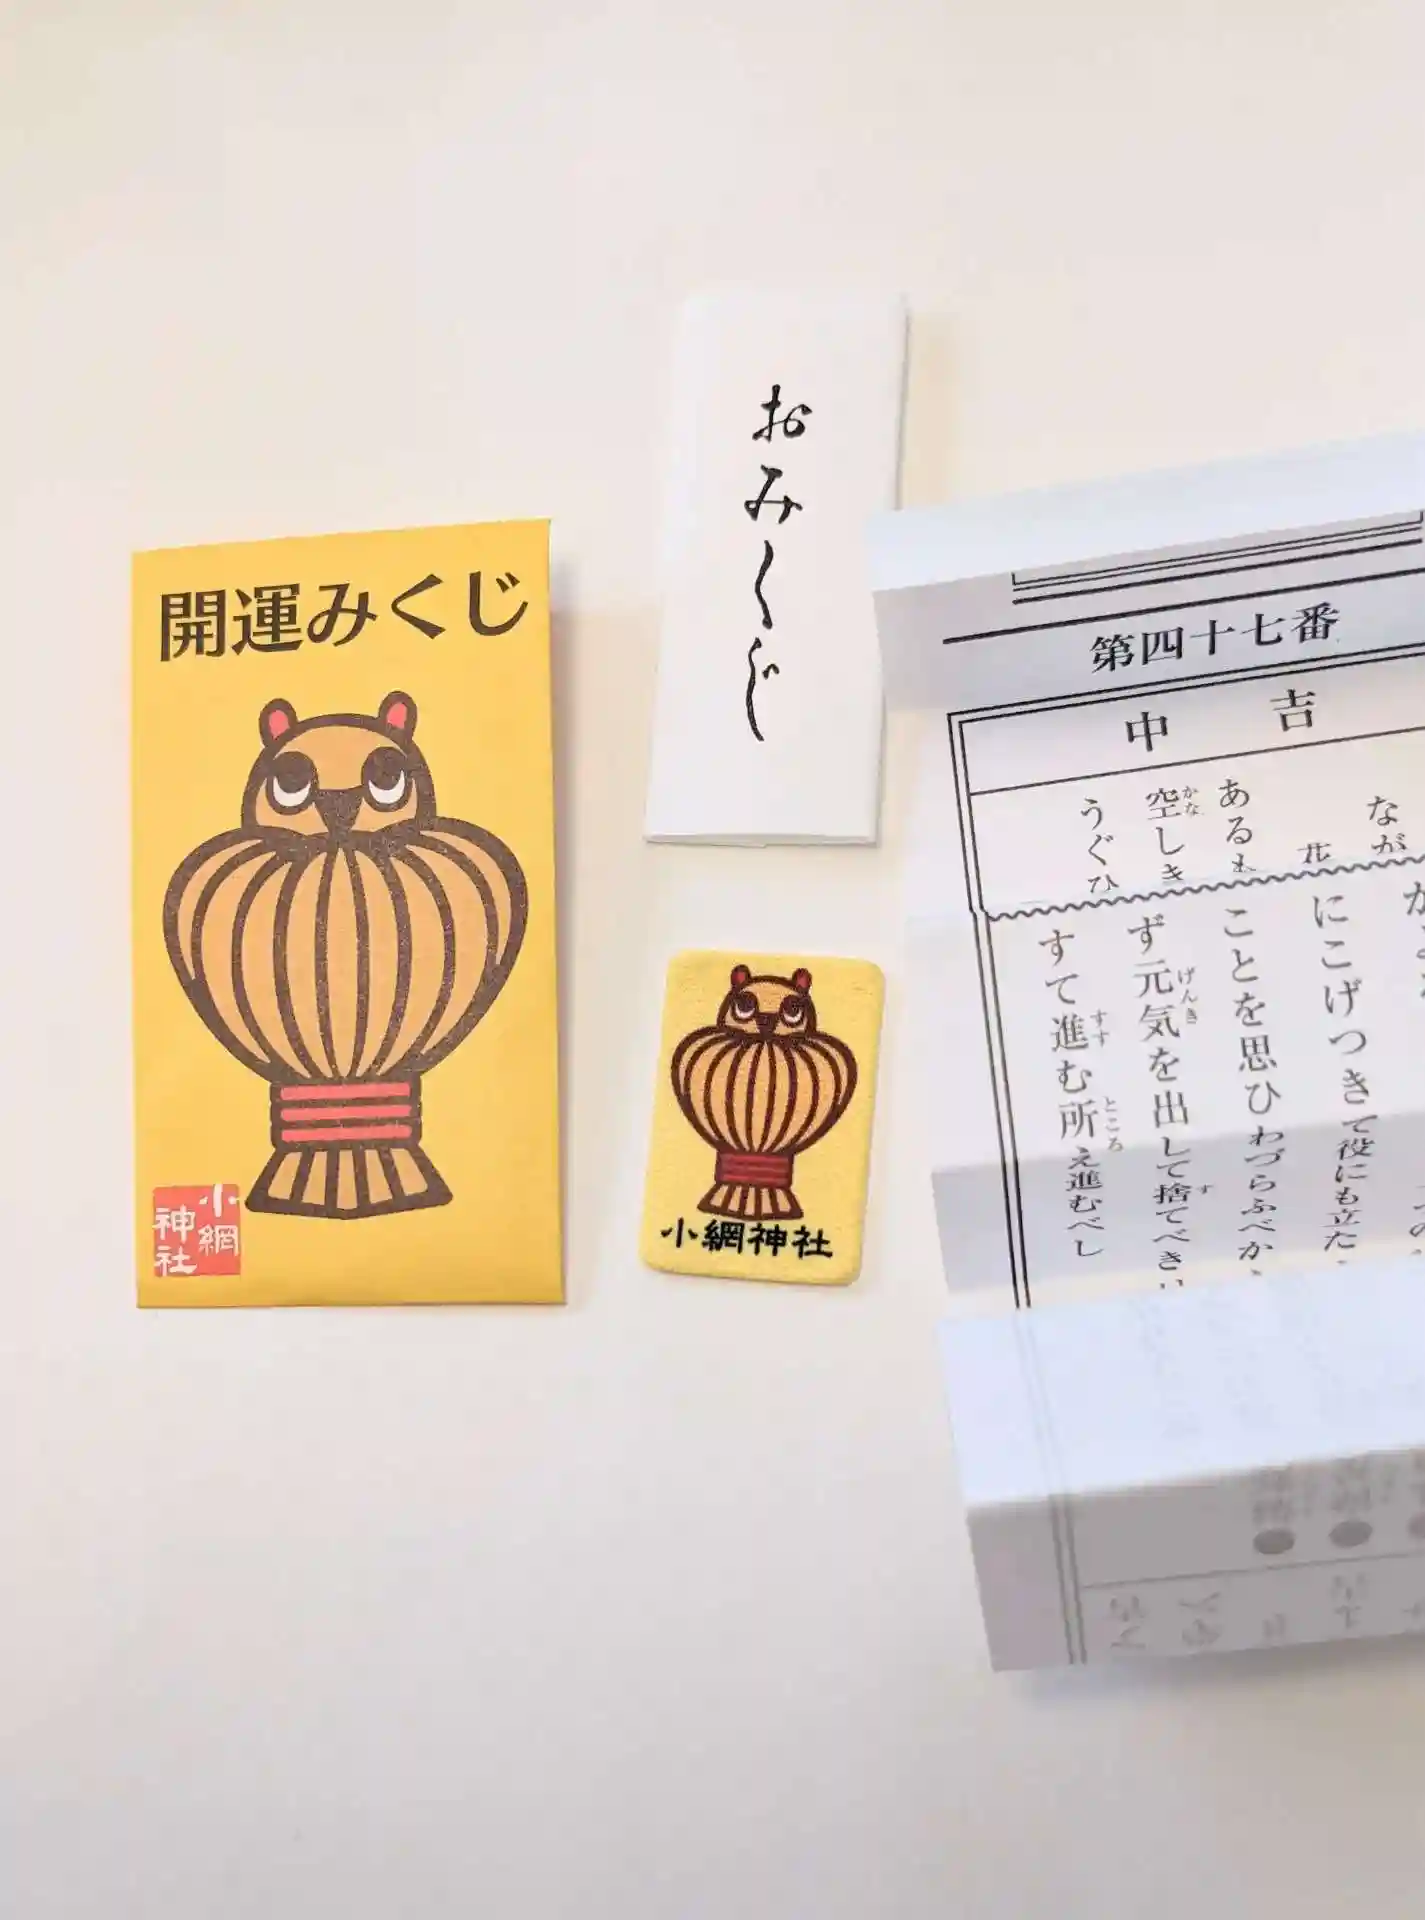 開運みくじ
小網
神社
おみくじ
小網神社
第四十七番
中吉
なが
花
あるも
空しき
かな
うぐひ
にこげつきて役にも立た
ことを思ひわづらふべか
ず元気を出して捨てべき
げんき
す
すて進む所え進むべし
すす
ところ